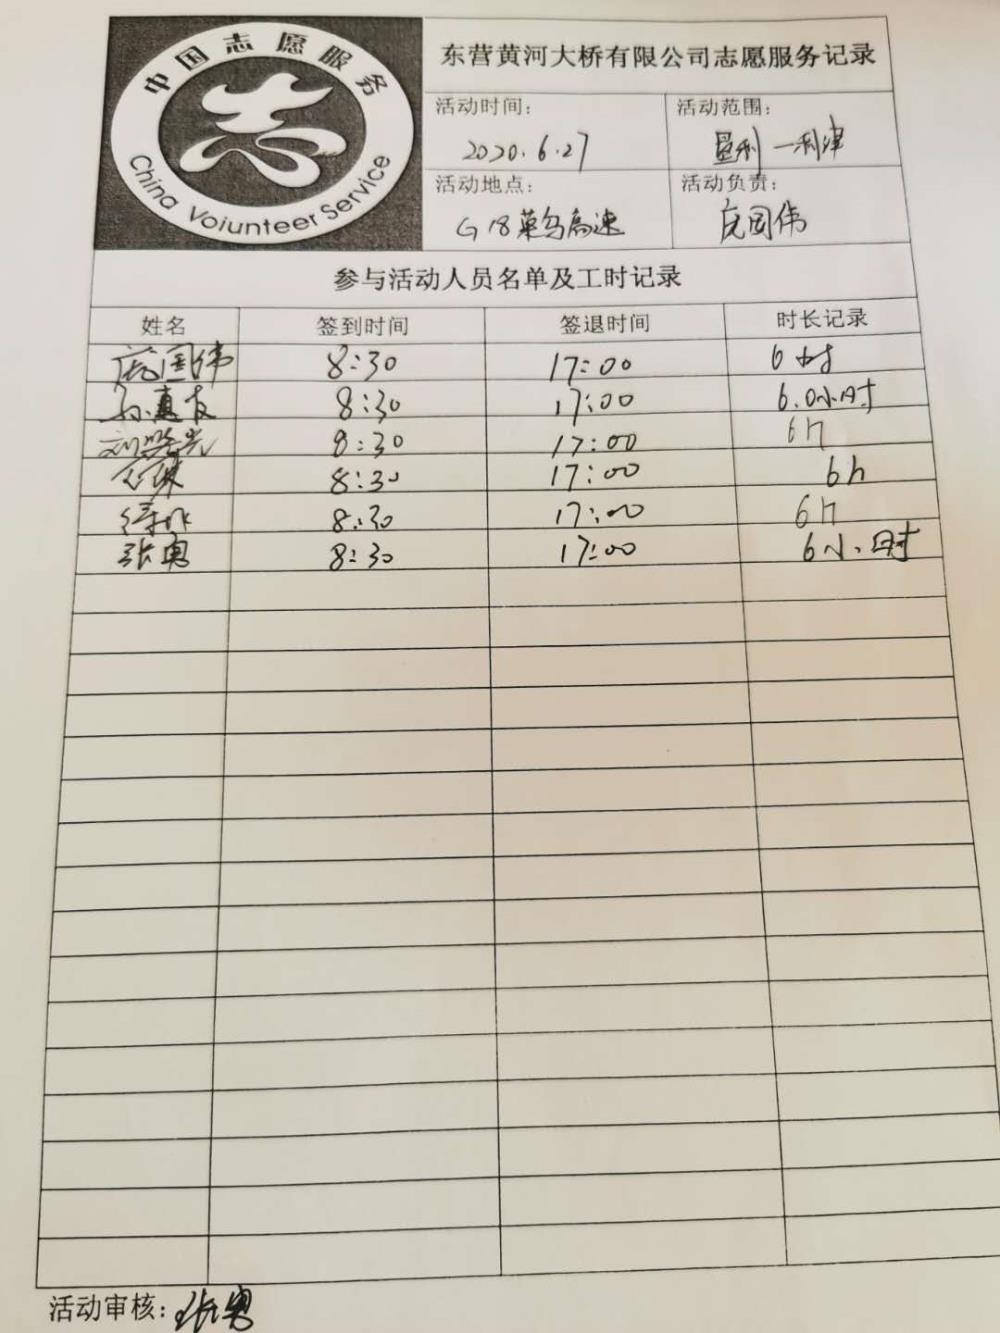 中国志愿服务
China Voiunteer Service
东营黄河大桥有限公司志愿服务记录
活动时间：
2020.6.27
活动范围：
垦利—利津
活动地点：
G18荣乌高速
活动负责：
庞国伟
参与活动人员名单及工时记录
姓名 签到时间 签退时间 时长记录
庞国伟 8:30 17:00 6时
8:30 17:00 6.0小时
8:30 17:00 6h
8:30 17:00 6h
8:30 17:00 6h
张勇 8:30 17:00 6小时
活动审核：张勇